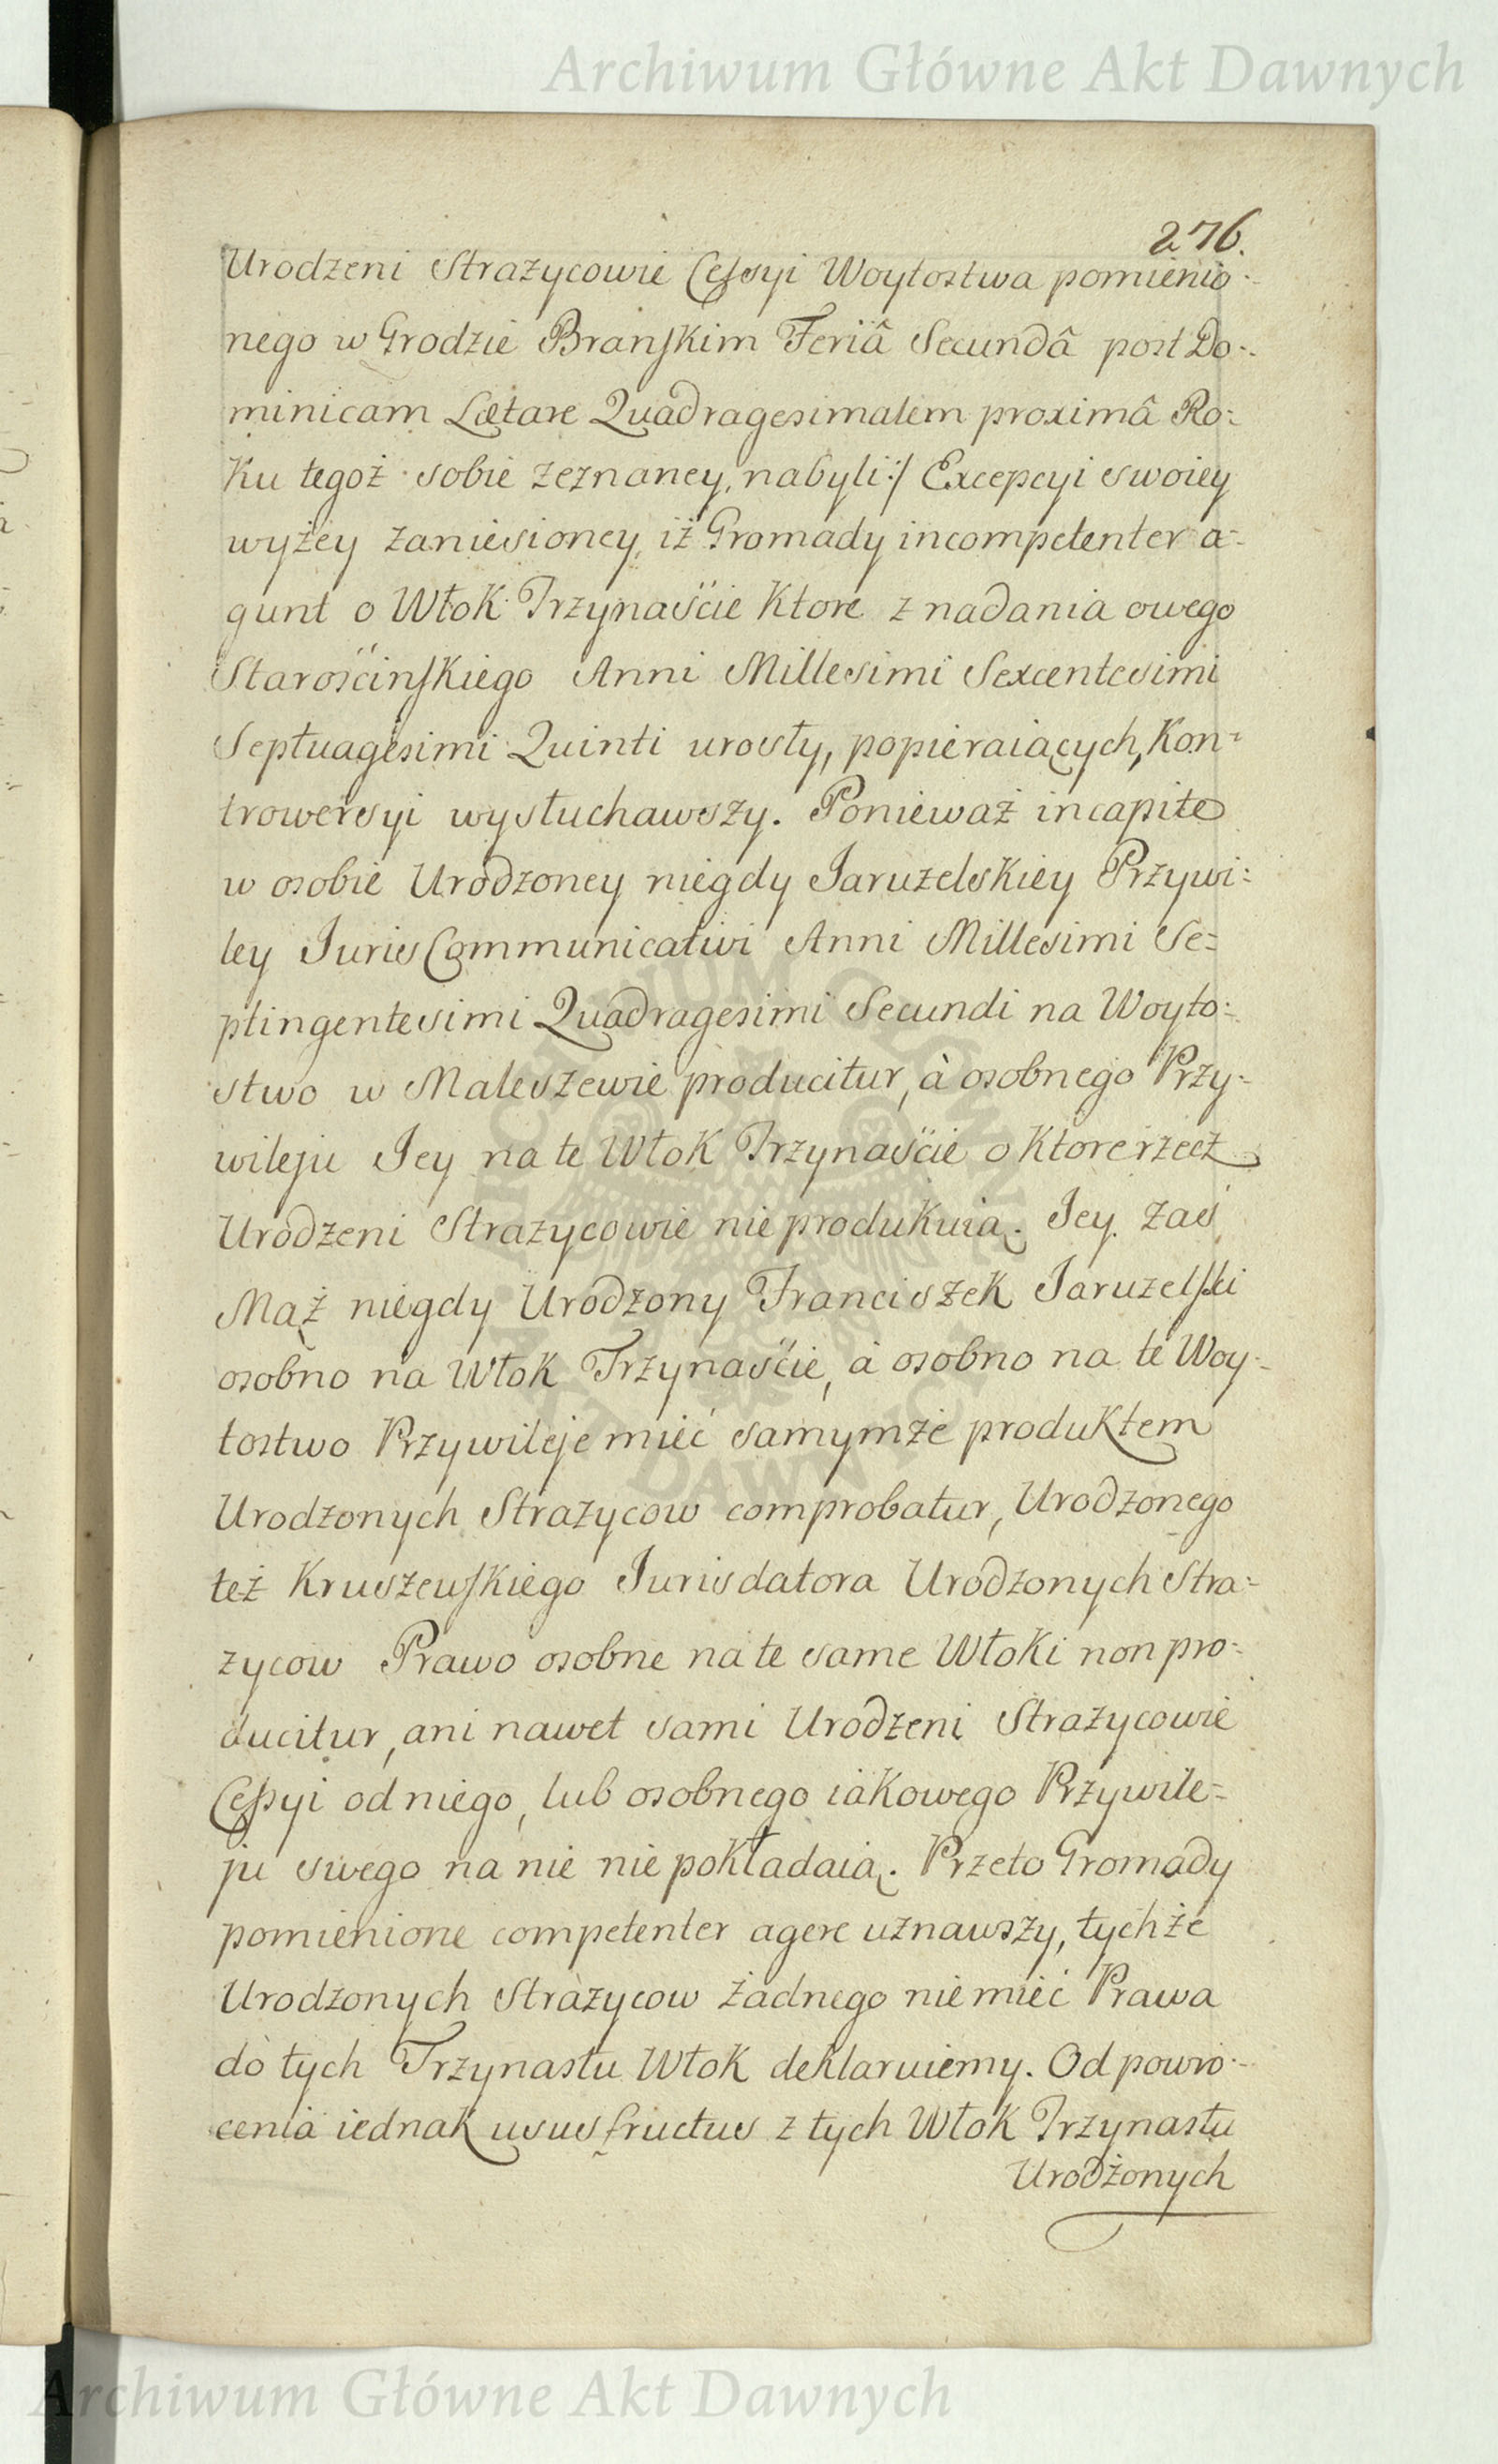 Archiwum Główne Akt Dawnych
276.
Urodzeni Strażycowie Cessyi Woytostwa pomienio:
nego w Grodzie Branskim Feriâ Secundâ post Do:
minicam Lætare Quadragesimalem proximâ Ro:
ku tegoż sobie zeznaney, nabyli:/ Excepcyi swoiey
wyżey zaniesioney, iż Gromady incompetenter a:
gunt o Włok Trzynaście Ktore z nadania owego
Starościnskiego Anni Millesimi Sexcentesimi
Septuagesimi Quinti urosły, popieraiących, Kon:
trowersyi wysłuchawszy. Ponieważ in capite
w osobie Urodzoney niegdy Jaruzelskiey Przywi:
ley Juris Communicativi Anni Millesimi Se:
ptingentesimi Quadragesimi Secundi na Woyto:
stwo w Maleszewie producitur, à osobnego Przy:
wileju Jey na te Włok Trzynaście o Ktore rzecz
Urodzeni Strażycowie nie produkuią. Jey zaś
Mąż niegdy Urodzony Franciszek Jaruzelski
osobno na Włok Trzynaście, à osobno na te Woy:
tostwo Przywileje mieć samymże produktem
Urodzonych Strażycow comprobatur, Urodzonego
też Kruszewskiego Jurisdatora Urodzonych Stra:
zycow Prawo osobne na te same Włoki non pro:
ducitur, ani nawet sami Urodzeni Strażycowie
Cessyi od niego, lub osobnego iakowego Przywile:
ju swego na nie nie pokładaią. Przeto Gromady
pomienione competenter agere uznawszy, tychże
Urodzonych Strażycow żadnego nie mieć Prawa
do tych Trzynastu Włok deklaruiemy. Od powro:
cenia iednak usus fructus z tych Włok Trzynastu
Urodzonych
Archiwum Główne Akt Dawnych